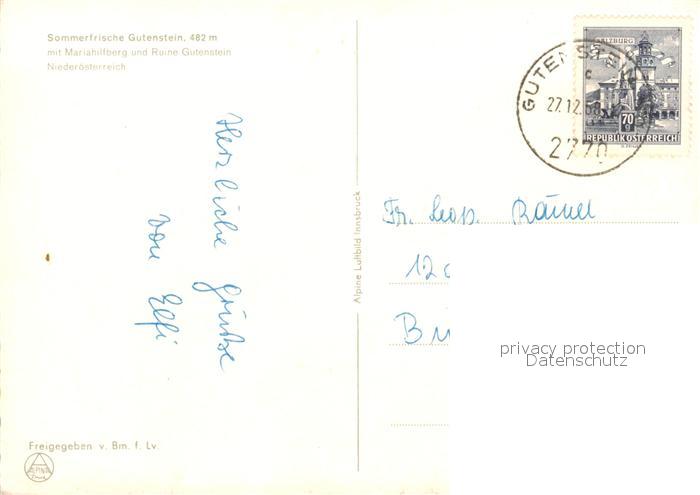 Sommerfrische Gutenstein, 482 m
mit Mariahilfberg und Ruine Gutenstein
Niederösterreich
Herzliche Grüße
von Elfi
Freigegeben v. Bm. f. Lv.
ALPINA
Druck
Alpine Luftbild Innsbruck
SALZBURG
70
g
REPUBLIK ÖSTERREICH
GUTENSTEIN
c
27.12.68
2770
Fr. Leop.
12
B
privacy protection
Datenschutz